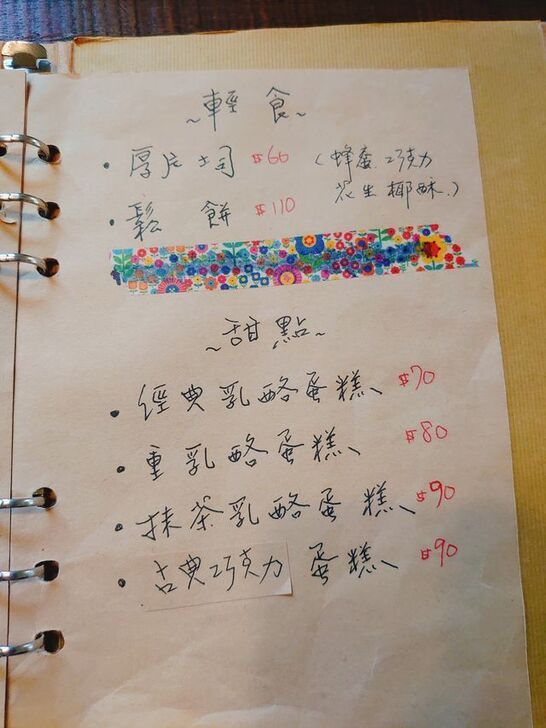 ~輕食~
• 厚片土司 $60 (蜂蜜.巧克力
花生.椰酥.)
• 鬆餅 $110
~甜點~
• 經典乳酪蛋糕 $70
• 重乳酪蛋糕 $80
• 抹茶乳酪蛋糕 $90
• 古典巧克力蛋糕 $90